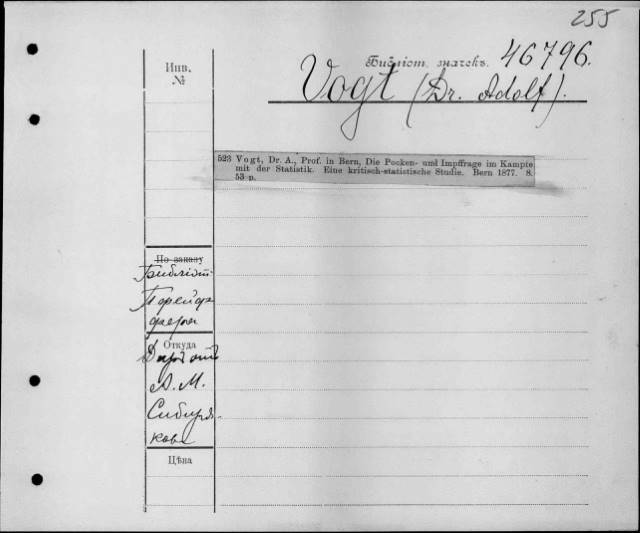 255
Библіот. значекъ. 46796.
Инв.
№
Vogt (Dr. Adolf).
523 Vogt, Dr. A., Prof. in Bern, Die Pocken- und Impffrage im Kampfe
mit der Statistik. Eine kritisch-statistische Studie. Bern 1877. 8.
53 p.
По заказу
Библіот.
Пфейф-
фера
Откуда
Даръ отъ
А. М.
Сибиря-
кова
Цѣна